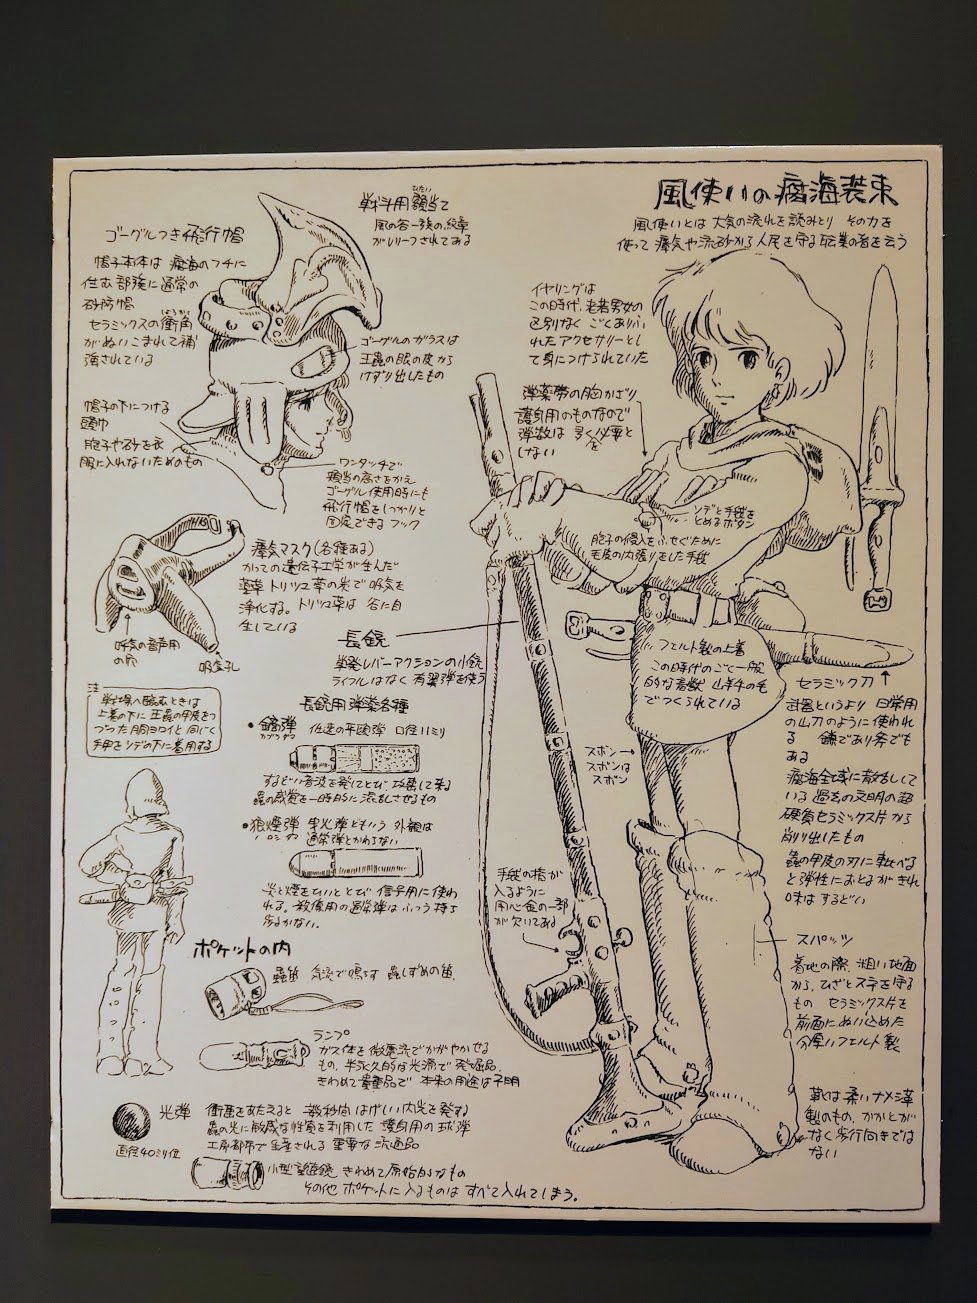 風使いの腐海装束
風使いとは 大気の流れを読みとり その力を
使って 瘴気や流砂から人民を守る職業の者を云う
戦斗用額当て
ひたい
風の谷一族の紋章
がレリーフされてある
ゴーグルつき飛行帽
帽子本体は 腐海のフチに
住む部族に通常の
砂防帽
セラミックスの衝角
しょうかく
がぬいこまれて補
強されている
ゴーグルのガラスは
王蟲の眼の皮から
けずり出したもの
帽子の下につける
頭巾
胞子や砂を衣
服に入れないためのもの
ワンタッチで
額当の高さをかえ
ゴーグル使用時にも
飛行帽をしっかりと
固定できる フック
イヤリングは
この時代、老若男女の
区別なく ごくありふ
れたアクセサリーとし
て身につけられていた
弾薬帯の胸かざり
護身用のものなので
弾数は 多くを必要と
しない
ソデと手袋を
とめるボタン
胞子の侵入をふせぐために
毛皮の内張りをした手袋
瘴気マスク(各種ある)
かつての遺伝子工学が生んだ
藻草 トリツコ草の炭で 吸気を
浄化する。トリツコ草は 谷に自
生している
呼気の音声用
の穴
吸気孔
長銃
単発レバーアクションの小銃
ライフルはなく 有翼弾を使う
フェルト製の上着
この時代のごく一般
的な着衣 山羊の毛
でつくられている
セラミック刀
武器というより 日常用
の山刀のように使われ
る 鎌であり斧でも
ある
腐海全域に散乱して
いる 過去の文明の超
硬質セラミック片から
削り出したもの
蟲の甲皮の刃に較べる
と弾性におとるがきれ
味はするどい
注
戦場へ臨むときは
上着の下に 王蟲の甲皮をつ
づった胴ヨロイと 同じく
手甲をソデの下に着用する
長銃用 弾薬各種
•鏑弾 低速の平頭弾 口径12ミリ
カブラダマ
するどい音波を発してとび、攻撃して来る
蟲の感覚を一時的に混乱させるもの
•狼煙弾 曳光弾ともいう 外観は
ノロシダマ
通常弾とかわらない
光と煙をひいてとび 信号用に使わ
れる。殺傷用の通常弾は ふつう持ち
あるかない。
ズボン
ズボンは
ズボン
手袋の指が
入るように
用心金の一部
が欠いてある
ポケットの内
蟲笛 気流で鳴らす 蟲しずめの笛
ランプ
ガス体を微電流でかがやかせる
もの、半永久的な光源で 発掘品。
きわめて貴重品で 本来の用途は不明
光弾 衝撃をあたえると 二数秒間はげしい閃光を発する
蟲の光に敏感な性質を利用した 護身用の球弾
工房都市で生産される重要な流通品
直径40ミリ位
小型望遠鏡 きわめて原始的なもの
その他 ポケットに入るものは すべて入れてしまう。
スパッツ
着地の際、粗い地面
から、ひざとスネを守る
もの セラミック片を
前面にぬい込めた
分厚いフェルト製
靴は柔いナメシ革
製のもの かかとが
なく 歩行向きでは
ない